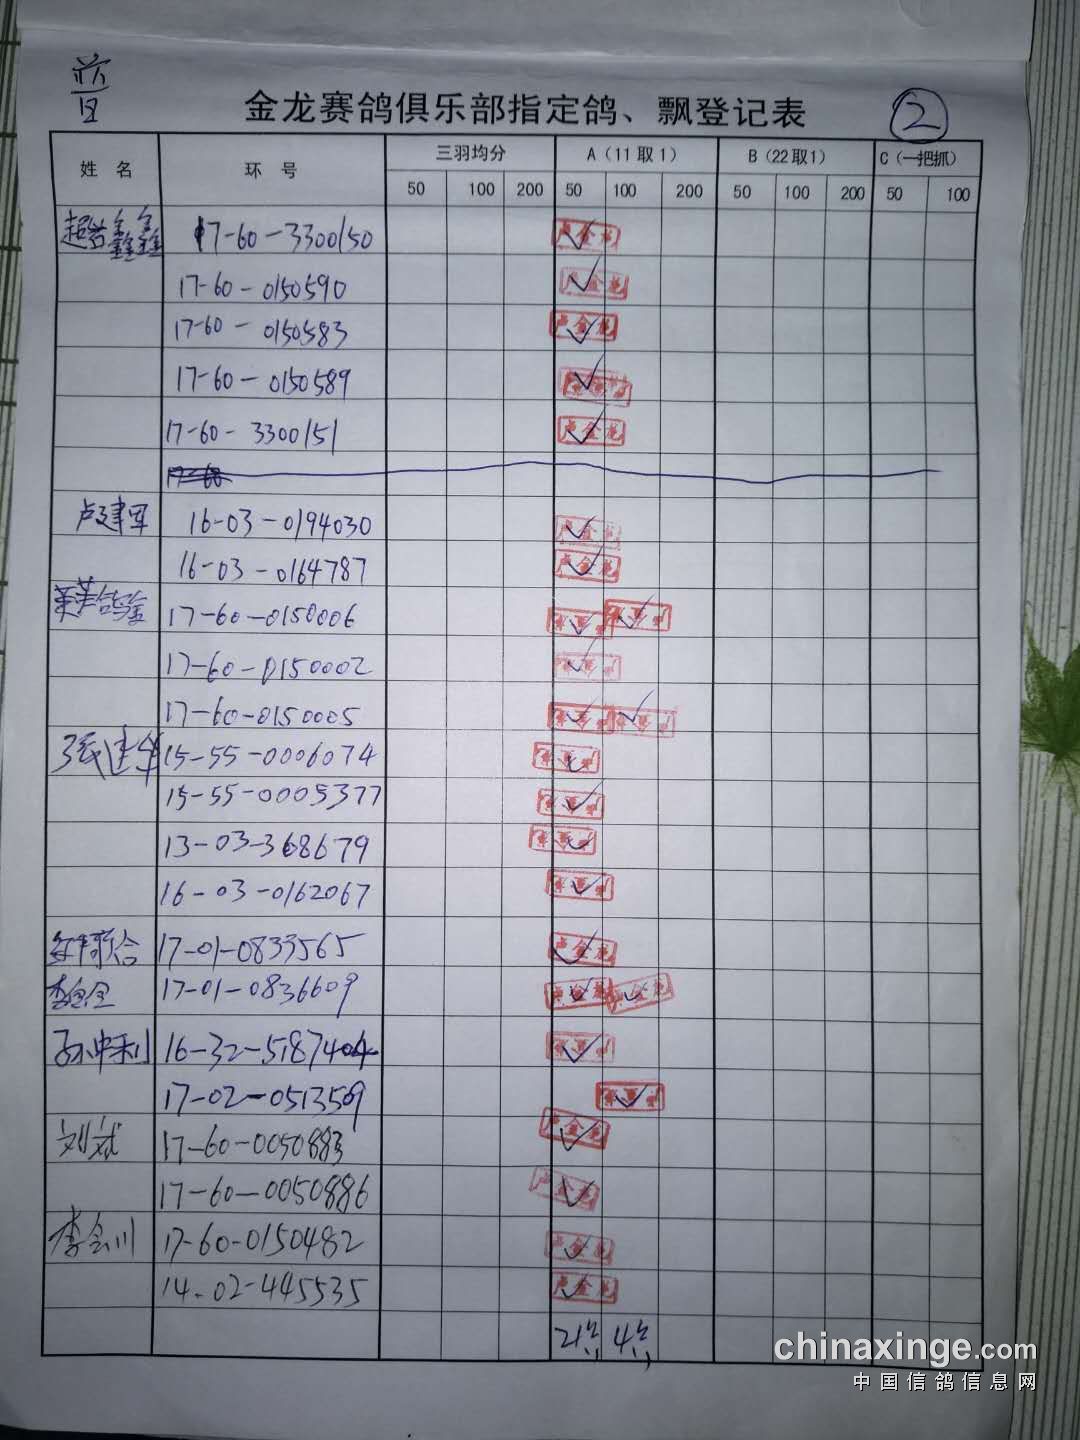 金龙赛鸽俱乐部指定鸽、飘登记表 ②
姓名 环号 三羽均分 A(11取1) B(22取1) C(一把抓)
50 100 200 50 100 200 50 100 200 50 100
超岩鑫鑫 17-60-3300150 ✓
17-60-0150590 ✓
17-60-0150583 ✓
17-60-0150589 ✓
17-60-3300151 ✓
卢建军 16-03-0194030 ✓
16-03-0164787 ✓
17-60-0150006 ✓ ✓
17-60-0150002 ✓
17-60-0150005 ✓ ✓
张建华 15-55-0006074 ✓
15-55-0005377 ✓
13-03-368679 ✓
16-03-0162067 ✓
联合 17-01-0833565 ✓
李金全 17-01-0836609 ✓ ✓
孙中利 16-32-5187404 ✓
17-02-0513509 ✓
刘斌 17-60-0050883 ✓
17-60-0050886 ✓
李会川 17-60-0150482 ✓
14-02-445535 ✓
21 4
chinaxinge.com
中国信鸽信息网